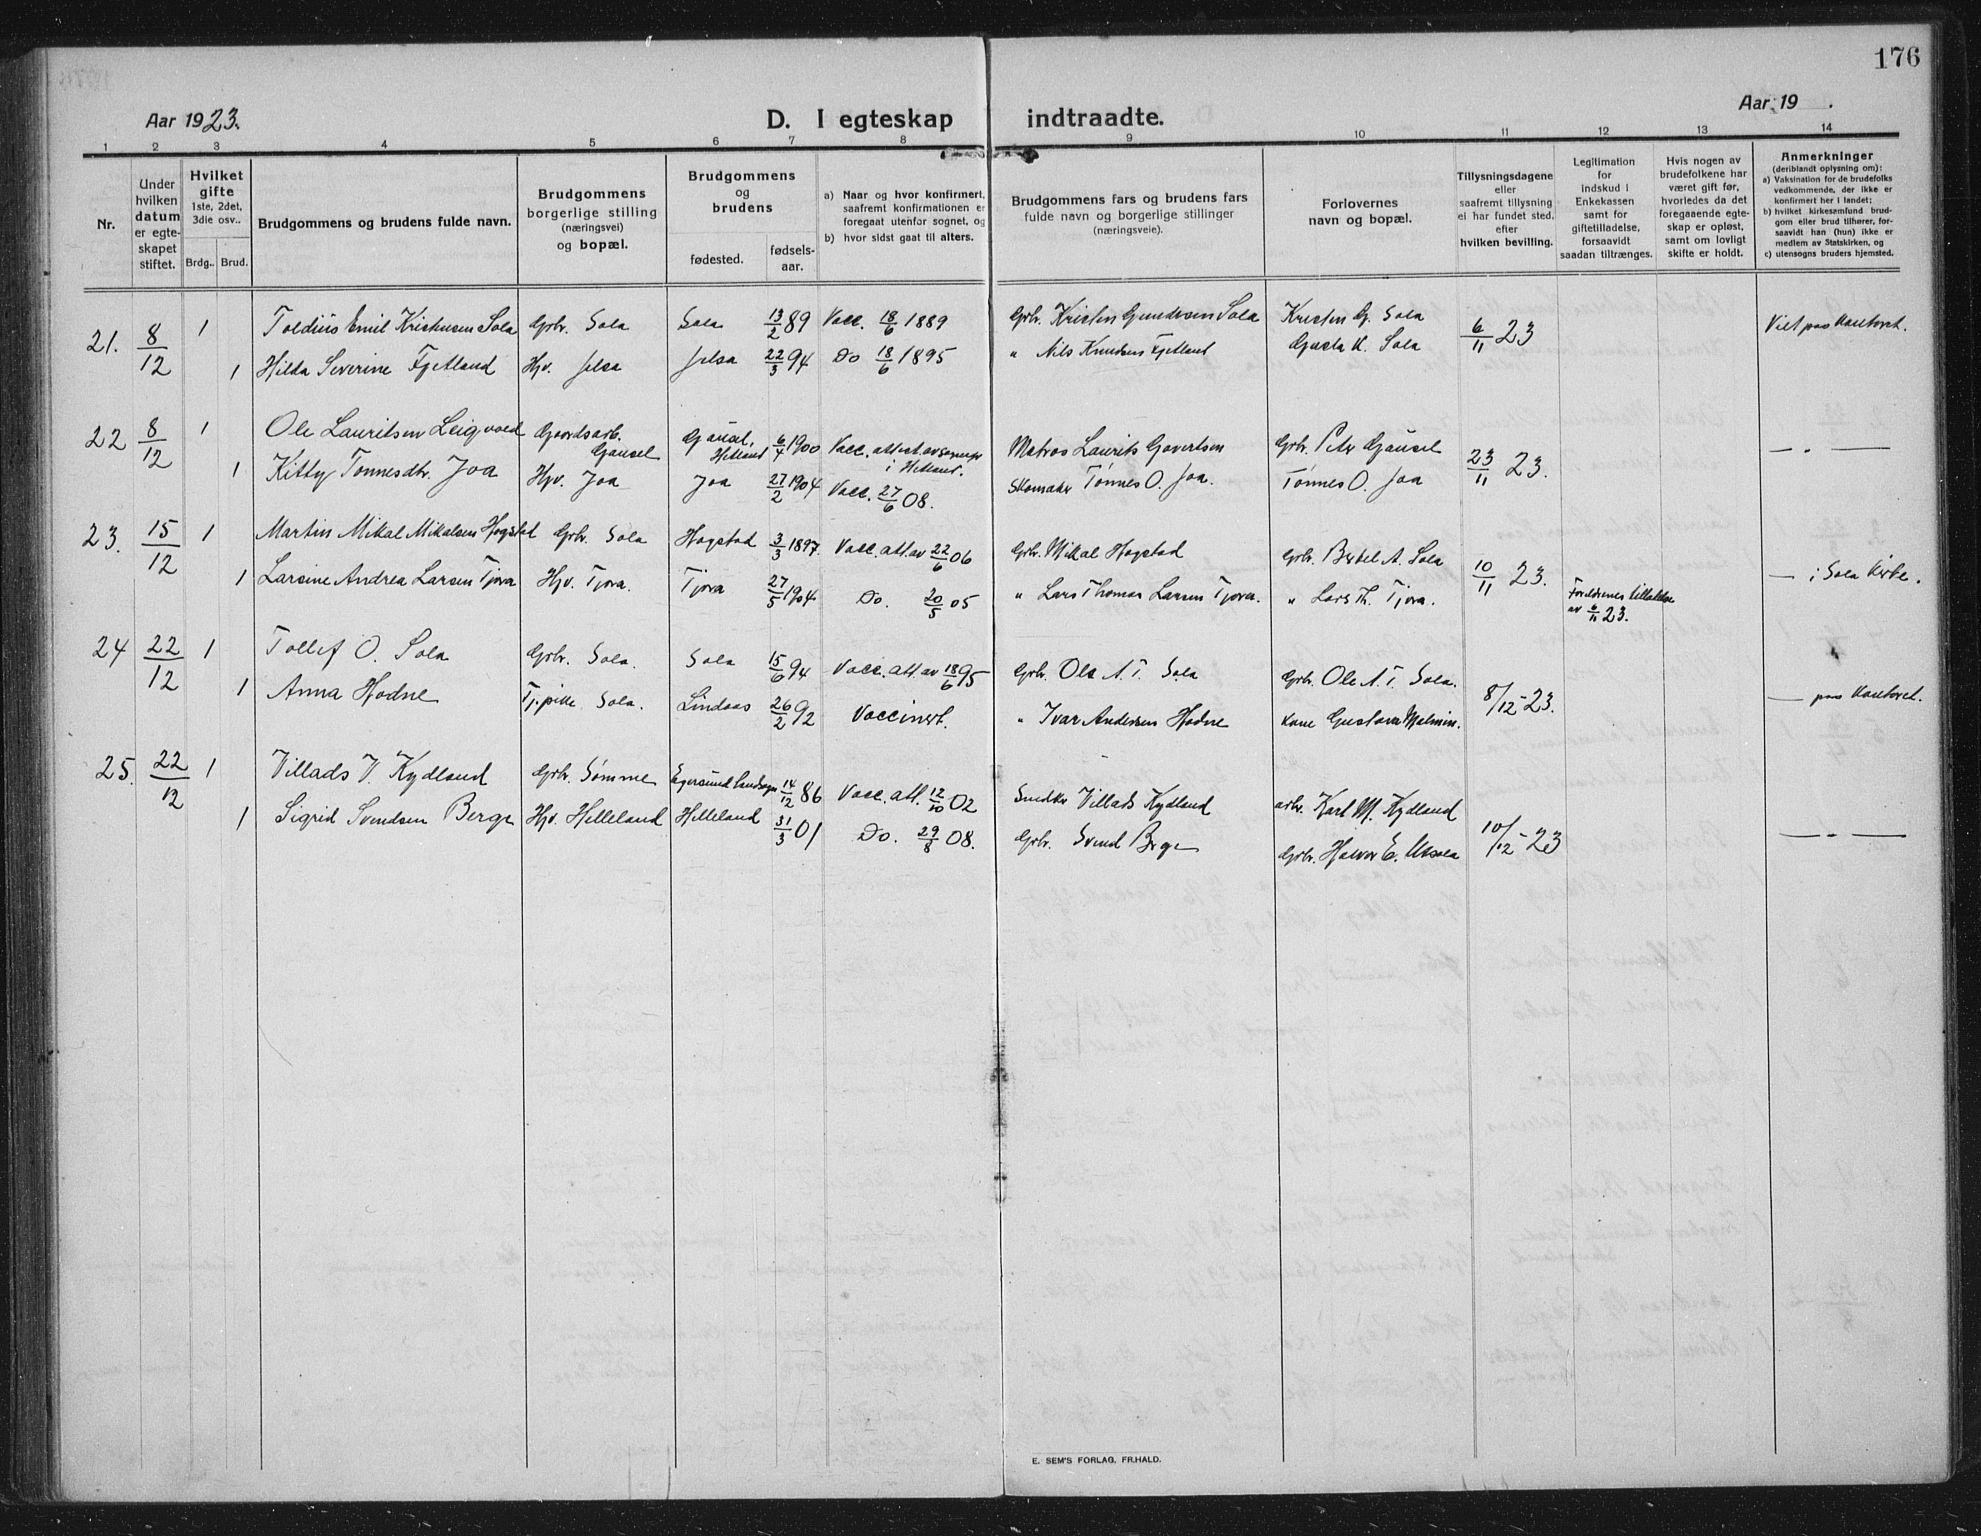 176
Aar 1923.
D. I egteskap indtraadte.
Aar 19 .
1 2 3 4 5 6 7 8 9 10 11 12 13 14
Nr.
Under hvilken datum er egteskapet stiftet.
Hvilket gifte 1ste, 2det, 3die osv..
Brdg.. Brud.
Brudgommens og brudens fulde navn.
Brudgommens borgerlige stilling (næringsvei) og bopæl.
Brudgommens og brudens
fødested.
fødsels-aar.
a) Naar og hvor konfirmert, saafremt konfirmationen er foregaat utenfor sognet, og
b) hvor sidst gaat til alters.
Brudgommens fars og brudens fars fulde navn og borgerlige stillinger (næringsveie).
Forlovernes navn og bopæl.
Tillysningsdagene eller saafremt tillysning ei har fundet sted, efter hvilken bevilling.
Legitimation for indskud i Enkekassen samt for giftetilladelse, forsaavidt saadan tiltrænges.
Hvis nogen av brudefolkene har været gift før, hvorledes da det foregaaende egteskap er opløst, samt om lovligt skifte er holdt.
Anmerkninger (deriblandt oplysning om):
a) Vaksination for de brudefolks vedkommende, der ikke er konfirmert her i landet;
b) hvilket kirkesamfund brudgom eller brud tilhører, forsaavidt han (hun) ikke er medlem av Statskirken, og
c) utensogns bruders hjemsted.
21. 8/12 1 Toldius Emil Kristensen Sola Grbr. Sola Sola 13/2 89 Vacc. 18/6 1889 Grbr. Kristen Gundersen Sola Kristen G. Sola 6/11 23 Viet paa Kontoret.
1 Hilda Severine Fjetland Hv. Jelsa Jelsa 22/3 94 Do 18/6 1895 " Nils Knudsen Fjetland Gusta K. Sola
22 8/12 1 Ole Lauritsen Leigvold Gaardsarb. Gausel Gausel, Hetland 6/4 1900 Vacc. attest av i Hetland. Matros Laurits Govertsen Grbr. Peter Gausel 23/11 23. — „ —
1 Kitty Tønnesdtr. Joa Hv. Joa Joa 27/2 1904 Vacc. 27/6 08. Skomaker Tønnes O. Joa. Tønnes O. Joa
23. 15/12 1 Martin Mikal Mikalsen Hogstad Grbr. Sola Hogstad 3/3 1897 Vacc. att. av 22/6 06 Grbr. Mikal Hogstad Grbr. Bertel A. Sola 10/11 23. — i Sola Kirke.
1 Larsine Andrea Larsen Tjora Hv. Tjora Tjora 27/5 1904 Do. 20/5 05 " Lars Thomas Larsen Tjora. " Lars Th. Tjora. Forældrenes tilladelse av 6/11 23.
24 22/12 1 Tollef O. Sola Grbr. Sola. Sola 15/6 94 Vacc. att. av 18/6 95 Grbr. Ole A. T. Sola Grbr. Ole A. T. Sola. 8/12 - 23. — paa Kontoret.
1 Anna Hodne Tj.pike Sola. Lindaas 26/2 92 Vaccinert. " Ivar Andersen Hodne Kone Gustava Malmin.
25. 22/12 1 Villads V. Kydland Grbr. Sømme Egersund landsogn 14/12 86 Vacc. att. 12/10 02 Snedker Villads Kydland arbr. Karl M. Kydland 10/12 - 23 — „ —
1 Sigrid Svendsen Berge Hv. Helleland Helleland 31/3 01 Do. 29/8 08. Grbr. Svend Berge Grbr. Halvor E. Utsola
E. SEM'S FORLAG, FR.HALD.